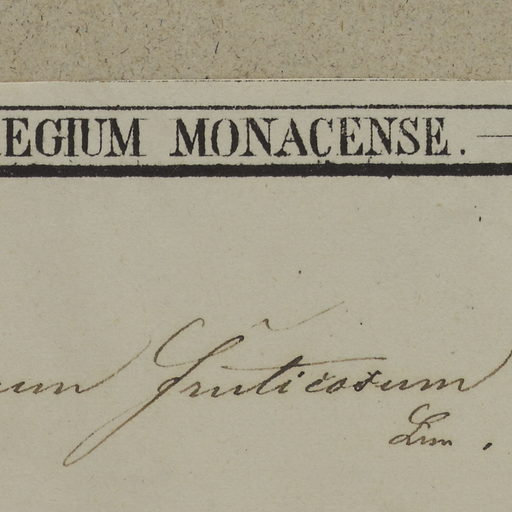 REGIUM MONACENSE.
um fruticosum
Linn.